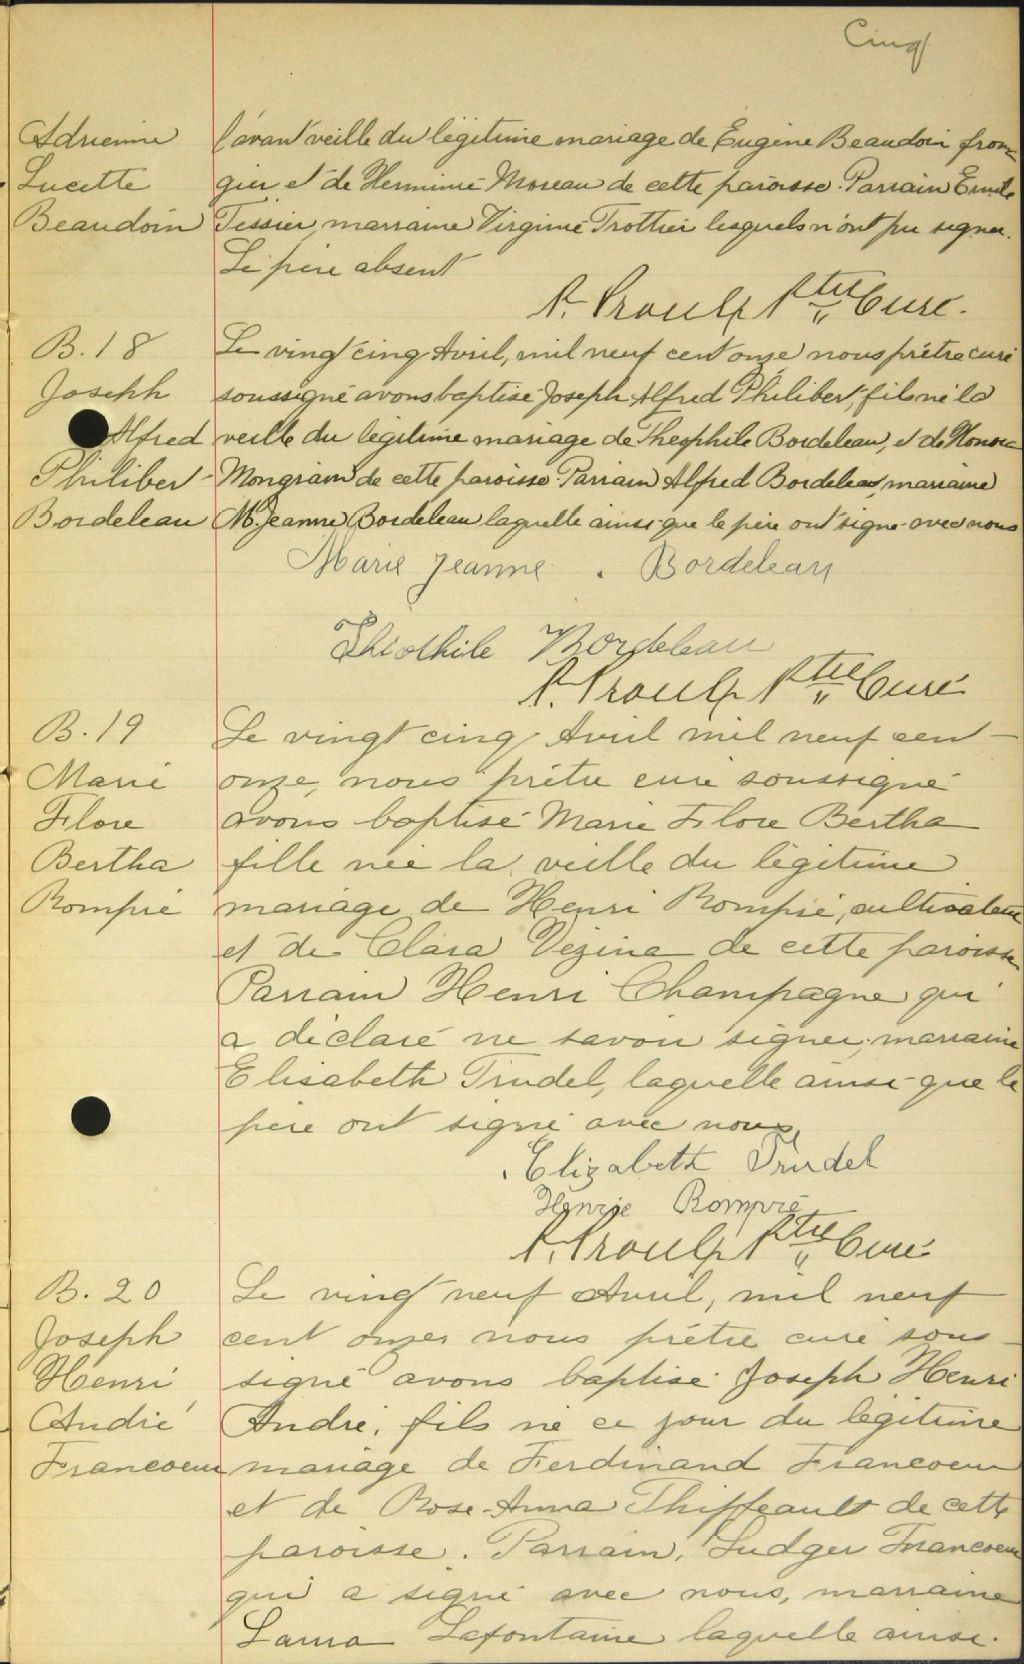 Cinq
Adrienne
Lucette
Beaudoin
l'avant veille du légitime mariage de Eugène Beaudoin froma
gier et de Herminie Moreau de cette paroisse. Parrain Emile
Tessier, marraine Virginie Trottier lesquels n'ont pu signer.
Le père absent
P. Proulx Ptre Curé.
B. 18
Joseph
Alfred
Philibert
Bordeleau
Le vingt cinq Avril, mil neuf cent onze nous prêtre curé
soussigné avons baptisé Joseph Alfred Philibert, fils né la
veille du légitime mariage de Théophile Bordeleau, et de Honora
Mongrain de cette paroisse. Parrain Alfred Bordeleau, marraine
M. Jeanne Bordeleau laquelle ainsi que le père ont signé avec nous
Marie Jeanne. Bordeleau
Théophile Bordeleau
P. Proulx Ptre Curé
B. 19
Marie
Flore
Bertha
Rompré
Le vingt cinq Avril mil neuf cent
onze, nous prêtre curé soussigné
avons baptisé Marie Flore Bertha
fille née la veille du légitime
mariage de Henri Rompré, cultivateur
et de Clara Vézina de cette paroisse
Parrain Henri Champagne qui
a déclaré ne savoir signer, marraine
Elisabeth Trudel, laquelle ainsi que le
père ont signé avec nous,
Elizabeth Trudel
Henrie Rompré
P. Proulx Ptre Curé
B. 20
Joseph
Henri
André
Francoeur
Le vingt neuf Avril, mil neuf
cent onze, nous prêtre curé sous-
signé avons baptisé Joseph Henri
André, fils né ce jour du légitime
mariage de Ferdinand Francoeur
et de Rose-Anna Thiffeault de cette
paroisse. Parrain, Ludger Francoeur
qui a signé avec nous, marraine
Laura Lafontaine laquelle ainsi.